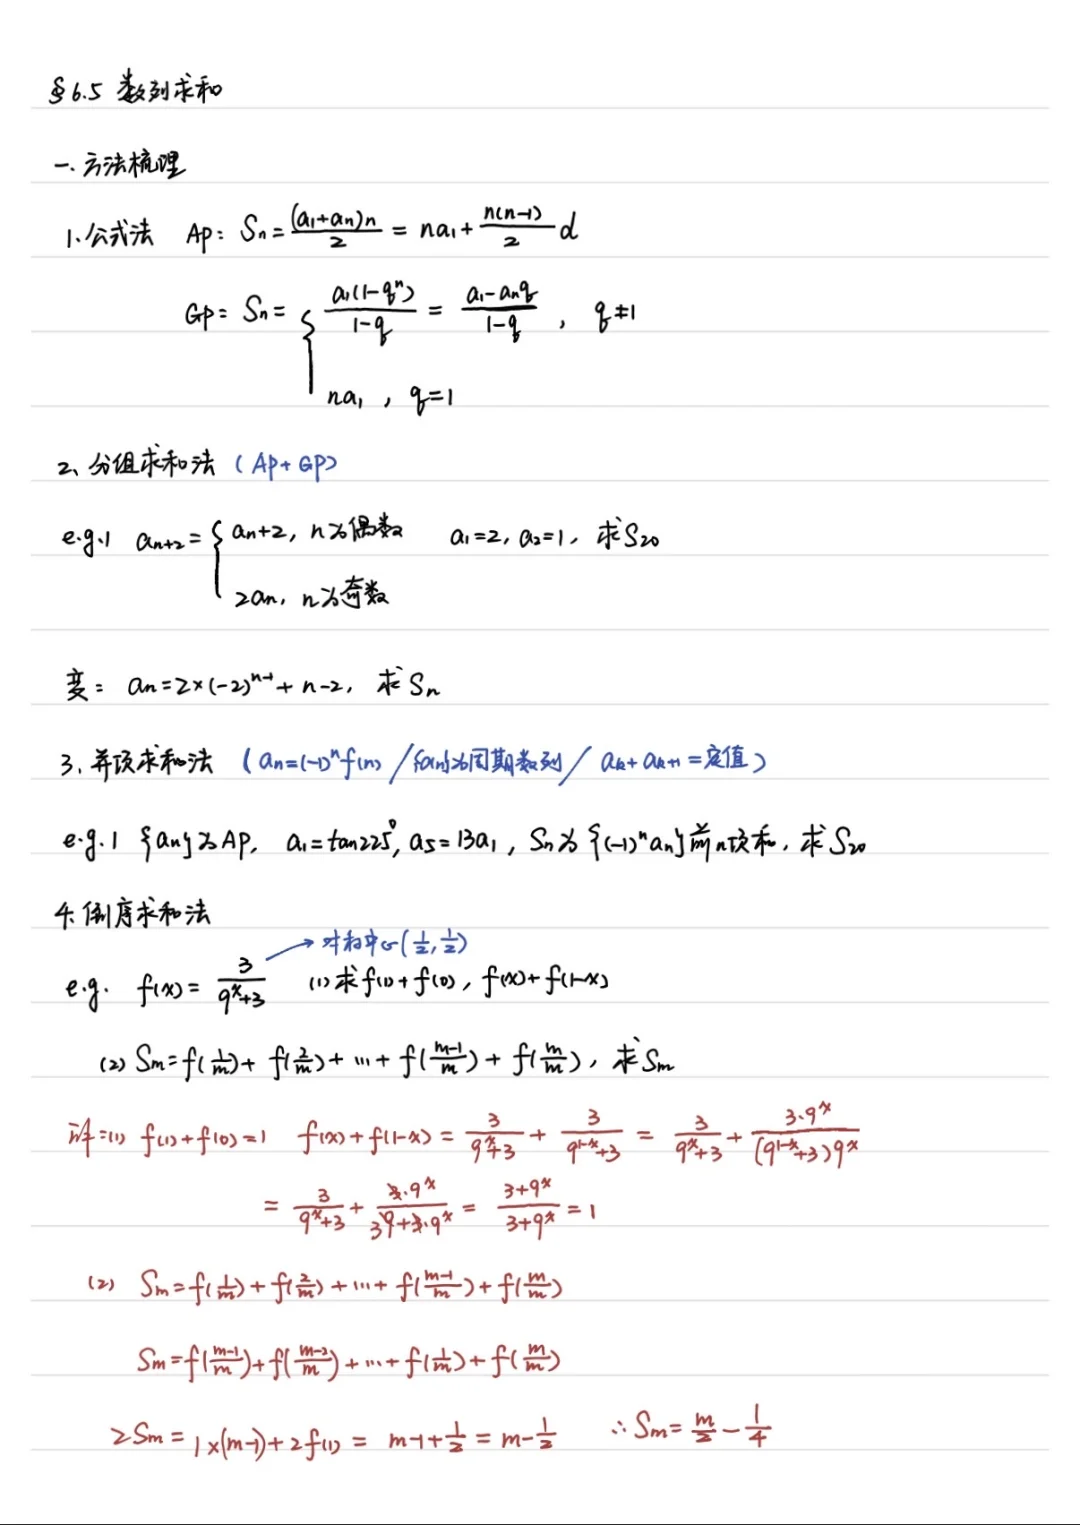 §6.5 数列求和
一. 方法梳理
1. 公式法 AP: Sn = (a₁+an)n/2 = na₁ + n(n-1)/2 d
GP: Sn = { a₁(1-qⁿ)/(1-q) = (a₁-anq)/(1-q), q≠1
na₁, q=1
2、分组求和法 (AP+GP)
e.g.1 aₙ₊₂ = { an+2, n为偶数 a₁=2, a₂=1, 求S₂₀
2an, n为奇数
变: an=2×(-2)ⁿ⁻¹+n-2, 求Sn
3. 并项求和法 (an=(-1)ⁿf(n) / {an}为周期数列 / aₖ+aₖ₊₁=定值)
e.g.1 {an}为AP, a₁=tan225°, a₅=13a₁, Sn为{(-1)ⁿan}前n项和, 求S₂₀
4. 倒序求和法
→对称中心(1/2, 1/2)
e.g. f(x) = 3/(9ˣ+3) (1)求f(1)+f(0), f(x)+f(1-x)
(2) Sm=f(1/m)+f(2/m)+…+f((m-1)/m)+f(m/m), 求Sm
解:(1) f(1)+f(0)=1 f(x)+f(1-x) = 3/(9ˣ+3) + 3/(9¹⁻ˣ+3) = 3/(9ˣ+3) + 3·9ˣ/((9¹⁻ˣ+3)9ˣ)
= 3/(9ˣ+3) + 3·9ˣ/(39+3·9ˣ) = (3+9ˣ)/(3+9ˣ) = 1
(2) Sm=f(1/m)+f(2/m)+…+f((m-1)/m)+f(m/m)
Sm=f((m-1)/m)+f((m-2)/m)+…+f(1/m)+f(m/m)
2Sm = 1×(m-1)+2f(1) = m-1+1/2 = m-1/2 ∴Sm = m/2 - 1/4